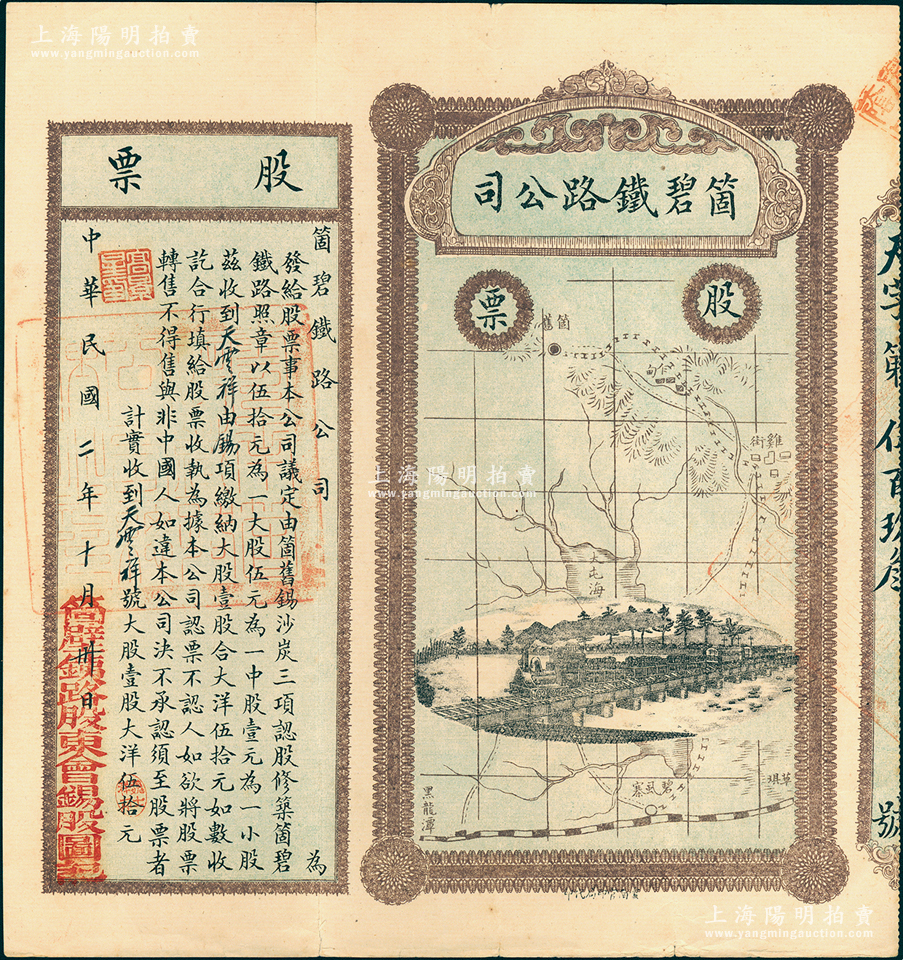 上海陽明拍賣
www.yangmingauction.com
天字第伍百玖
號
箇碧鐵路公司
股票
箇舊
雞街
屯海
碧虱寨
草垻
黑龍潭
股票
箇碧鐵路公司 為
發給股票事本公司議定由箇舊錫沙炭三項認股修築箇碧
鐵路照章以伍拾元為一大股伍元為一中股壹元為一小股
茲收到天雲祥由錫項繳納大股壹股合大洋伍拾元如數收
訖合行填給股票收執為據本公司認票不認人如欲將股票
轉售不得售與非中國人如違本公司決不承認須至股票者
計實收到天雲祥號大股壹股大洋伍拾元
中華民國二年十月卅日
箇碧鐵路股東會錫股圖記
上海陽明拍賣
www.yangmingauction.com
上海陽明拍賣
www.yangmingauction.com